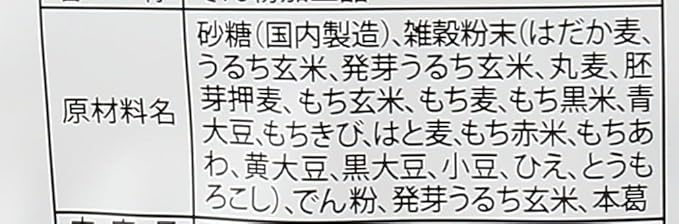 原材料名
砂糖(国内製造)、雑穀粉末(はだか麦、
うるち玄米、発芽うるち玄米、丸麦、胚
芽押麦、もち玄米、もち麦、もち黒米、青
大豆、もちきび、はと麦、もち赤米、もちあ
わ、黄大豆、黒大豆、小豆、ひえ、とうも
ろこし)、でん粉、発芽うるち玄米、本葛